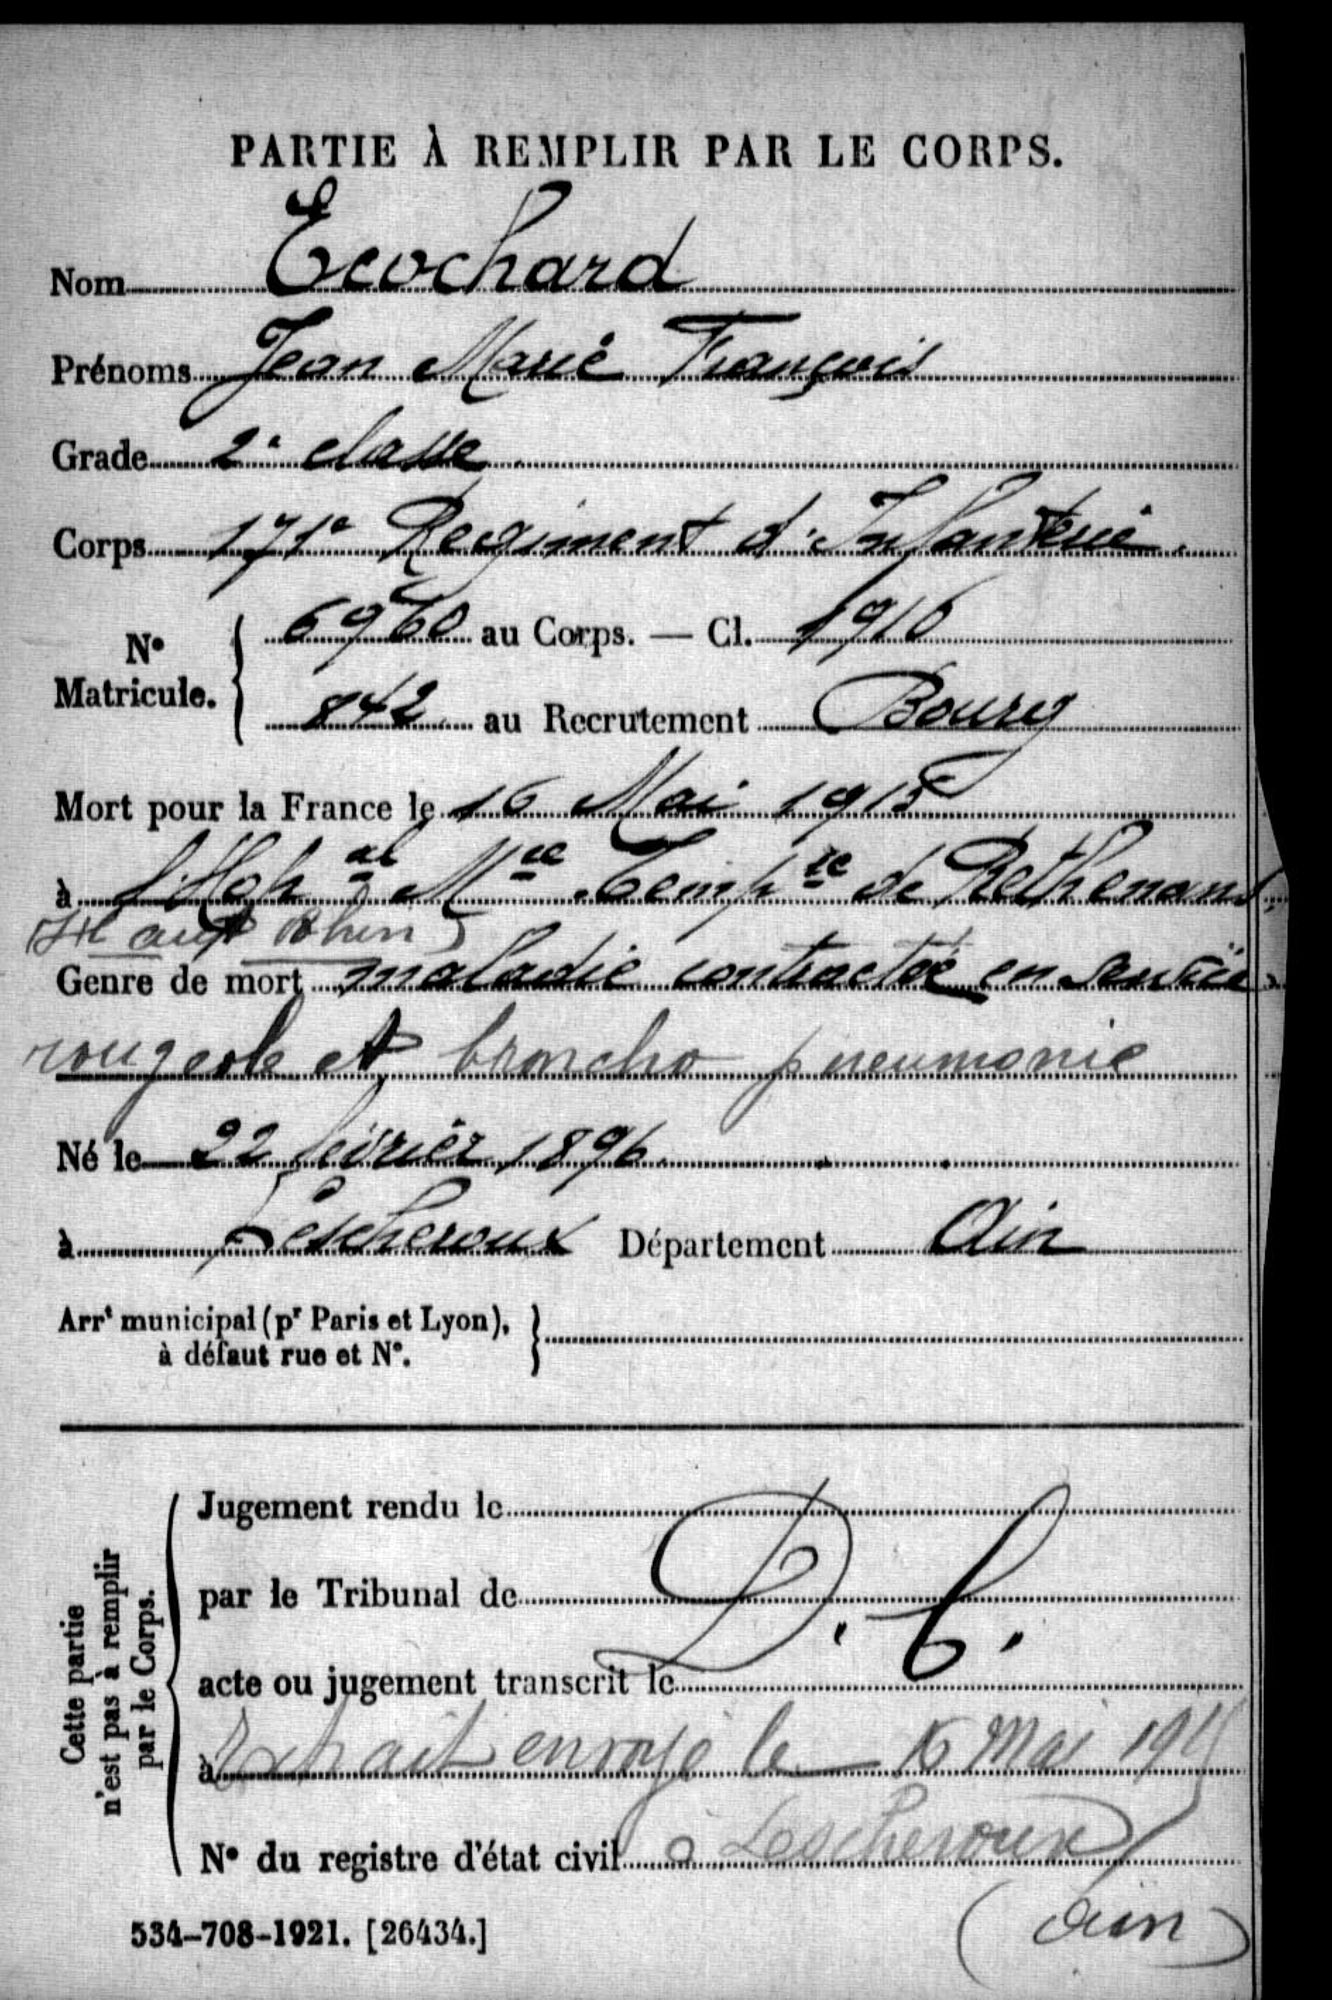 PARTIE À REMPLIR PAR LE CORPS.
Nom Ecochard
Prénoms Jean Marie François
Grade 2e classe.
Corps 171e Regiment d'Infanterie.
No Matricule. 6960 au Corps. — Cl. 1916
842 au Recrutement Bourg
Mort pour la France le 16 Mai 1915
à l'Hop al Mre Temp re de Rethenans.
(Haut Rhin)
Genre de mort maladie contractée en service
rougeole et broncho pneumonie
Né le 22 février 1896.
à Lescheroux Département Ain
Arrt municipal (pr Paris et Lyon),
à défaut rue et No.
Cette partie
n'est pas à remplir
par le Corps.
Jugement rendu le
par le Tribunal de
D. C.
acte ou jugement transcrit le
à Extrait envoyé le 16 Mai
No du registre d'état civil à Lescheroux
(Ain)
534-708-1921. [26434.]